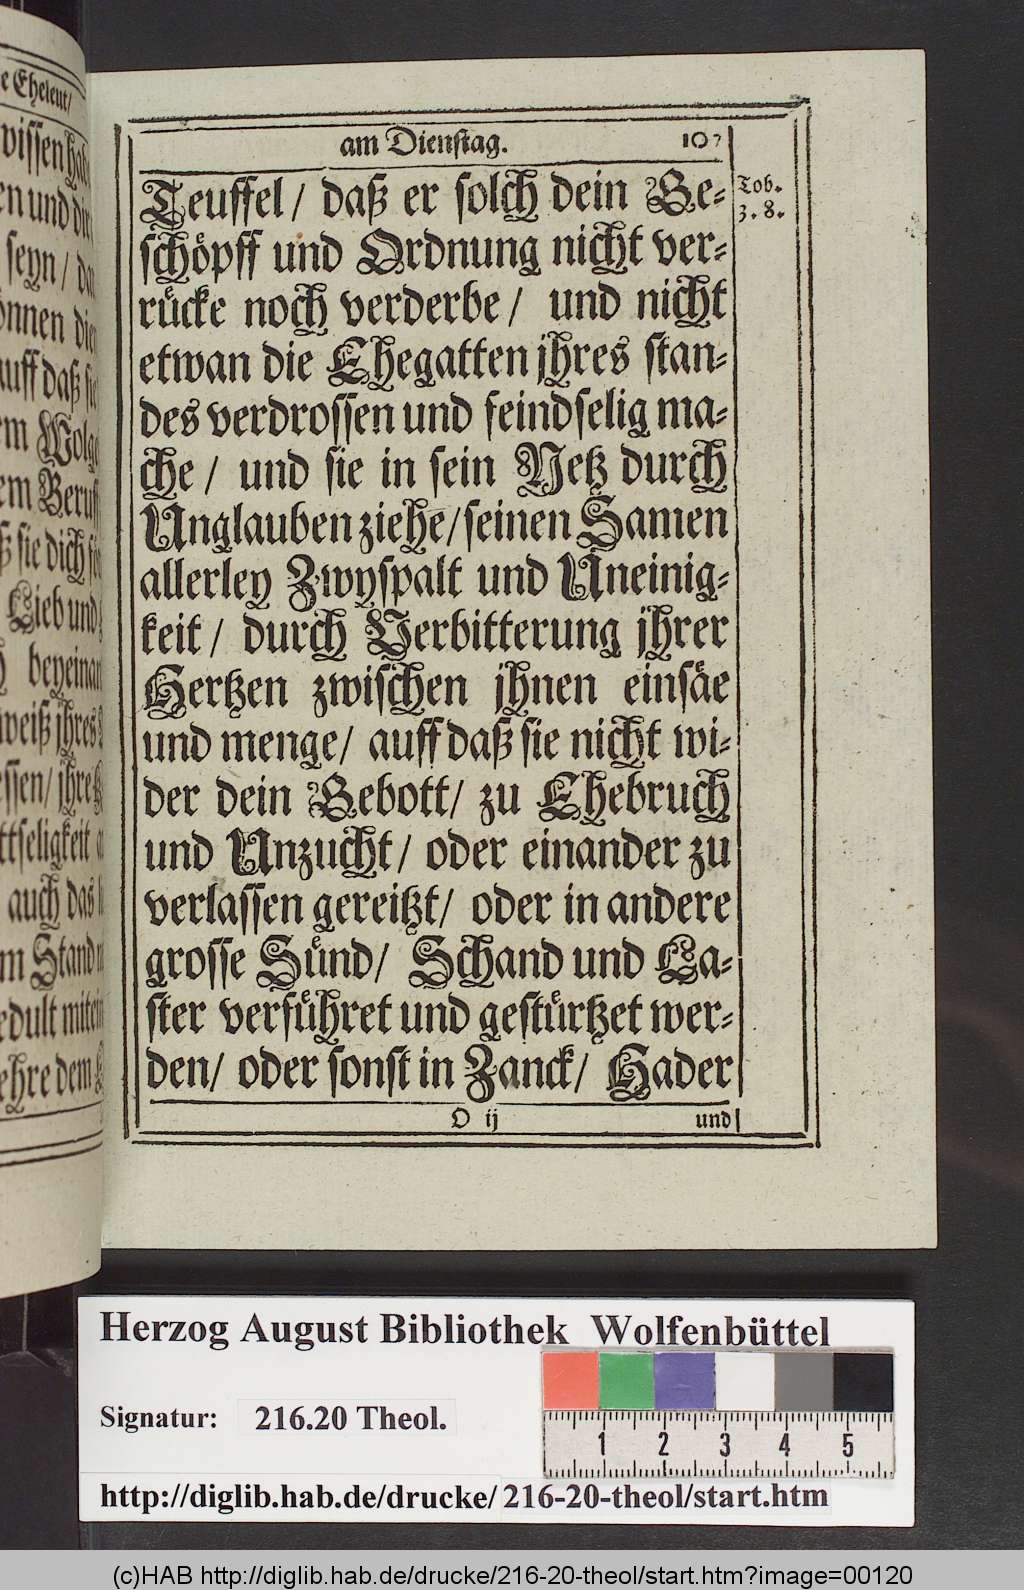 e Eheleut/
wissen hab
en und die
seyn / da
onnen die
auff daß sie
em Wolge
em Beruff
ß sie dich
Lieb und
beyeinan
weiß jhres
essen/ jhre
ttseligkeit
auch das
m Stand
edult mitein
ehre dem
am Dienstag. 107
Teuffel / daß er solch dein Ge-
schöpff und Ordnung nicht ver-
rücke noch verderbe / und nicht
etwan die Ehegatten jhres stan-
des verdrossen und feindselig ma-
che / und sie in sein Netz durch
Unglauben ziehe / seinen Samen
allerley Zwyspalt und Uneinig-
keit / durch Verbitterung jhrer
Hertzen zwischen jhnen einsäe
und menge / auff daß sie nicht wi-
der dein Gebott / zu Ehebruch
und Unzucht / oder einander zu
verlassen gereitzt / oder in andere
grosse Sünd / Schand und La-
ster verführet und gestürtzet wer-
den / oder sonst in Zanck / Hader
O ij und
Tob.
3. 8.
Herzog August Bibliothek Wolfenbüttel
Signatur: 216.20 Theol.
1 2 3 4 5
http://diglib.hab.de/drucke/216-20-theol/start.htm
(c)HAB http://diglib.hab.de/drucke/216-20-theol/start.htm?image=00120